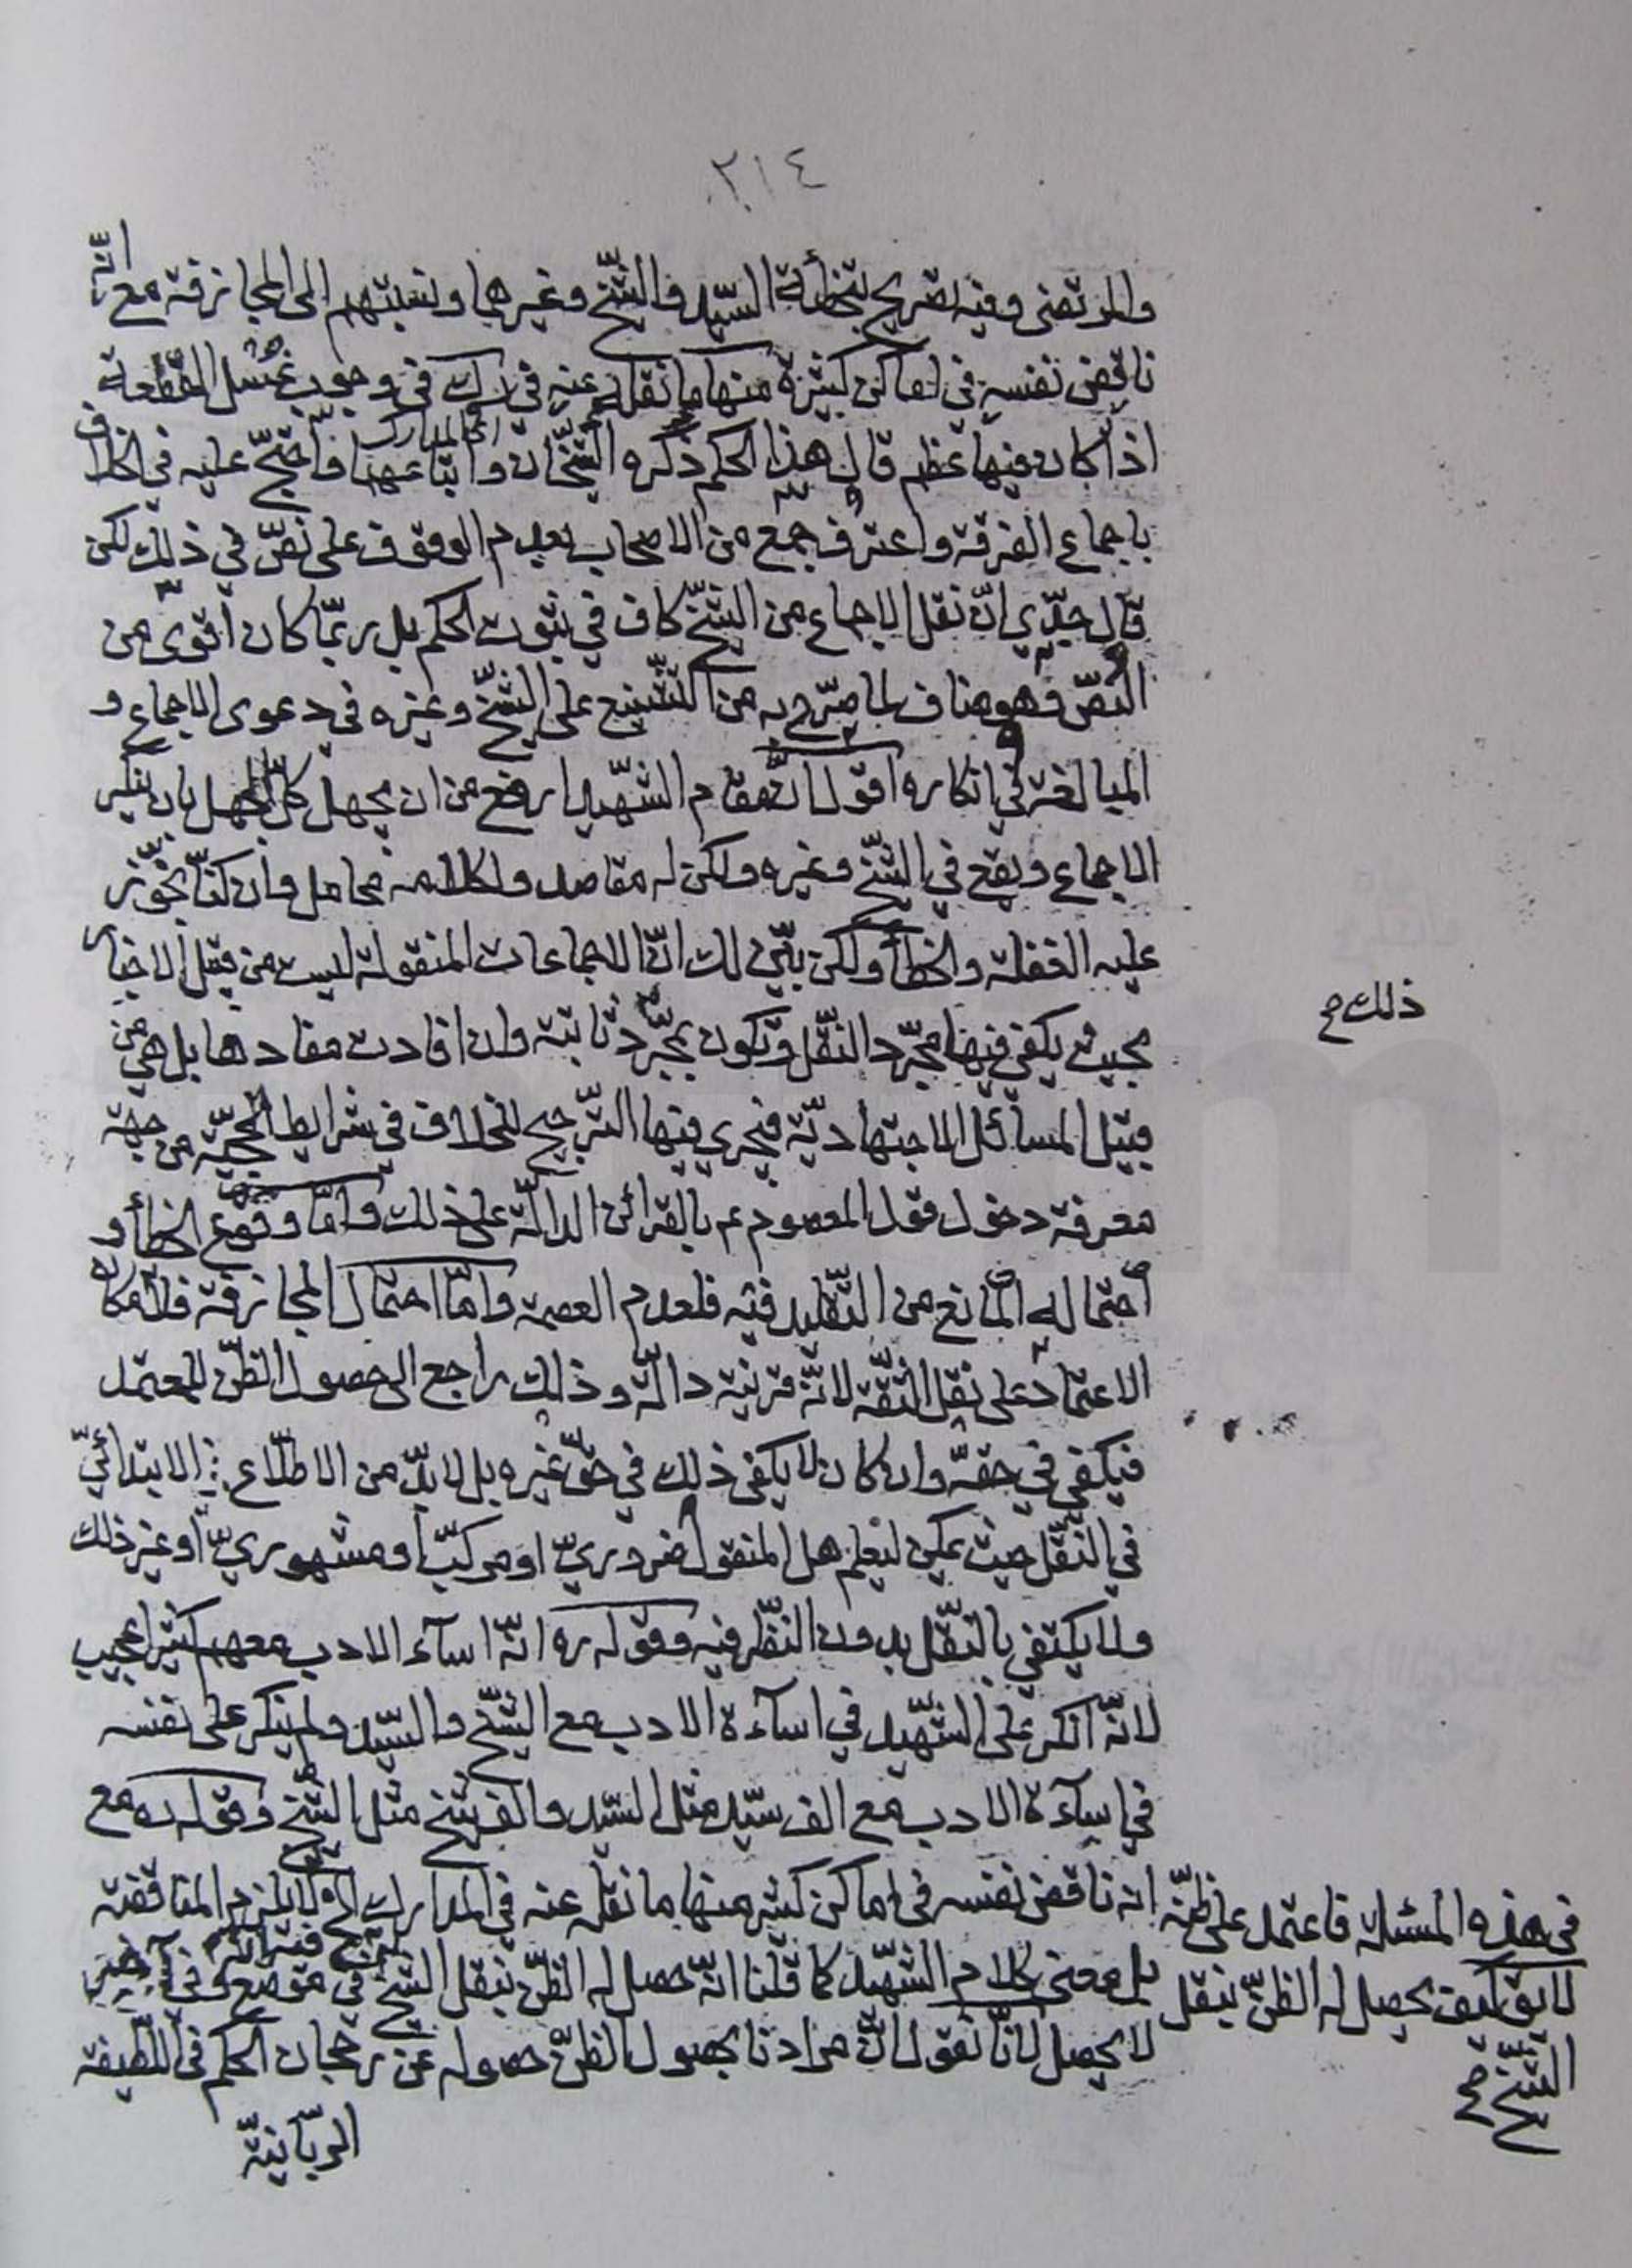 ٢١٤
والمرتضى وفيه تصريح بتخطأة السّيد والشّيخ وغيرهما ونسبتهم الى المجازفة مع انّه
ناقض نفسه في اماكن كثيرة منها ما نقله عنه في رك في وجوب غسل القطعة
اى المدارك
اذا كان فيها عظم قال هذا الحكم ذكره الشّيخان واتباعهما واحتجّ عليه في الخلاف
باجماع الفرقة واعترف جمع من الاصحاب بعدم الوقوف على نصّ في ذلك لكن
قال جدّي انّ نقل الاجماع من الشّيخ كاف في ثبوت الحكم بل ربّما كان اقوى من
النصّ وهو مناف لما صرّح به من التّشنيع على الشّيخ وغيره في دعوى الاجماع و
المبالغة في انكاره اقول انّ مقام الشّهيد ارفع من ان يجهل كلّ الجهل بان ينكر
الاجماع ويقع في الشّيخ وغيره ولكن له مقاصد ولكلامه محامل وان كنّا نجوّز
عليه الغفلة والخطأ ولكن بيّن لك انّ الاجماعات المنقولة ليست من قبيل الاخبار
بحيث يكفي فيها مجرّد النّقل وتكون بمجرّد ثابتة وان افادت مفادها بل هي من
ذلك صح
قبيل المسائل الاجتهاديّة فيجري فيها التّرجيح للخلاف في شرايط الحجيّة من جهة
معرفة دخول قول المعصوم عم بالقرائن الدالّة على ذلك وامّا وقوع الخطأ و
احتماله المانع من التّقليد فيه فلعدم العصمة وامّا احتمال المجازفة فلامكان
الاعتماد على نقل الثّقة لانّه قرينة دالّة وذلك راجع الى حصول الظّن للمعتمد
فيكفي في حقّه وان كان لا يكفي ذلك في حقّ غيره بل لا بدّ من الاطّلاع الابتدائيّ
في النّقل حيث يمكن ليعلم هل المنقول ضروريّ او مركّب او مشهوريّ او غير ذلك
ولا يكتفي بالنّقل بدون النّظر فيه وقوله ره انّه اساء الادب معهم كثيرا عجيب
لانّه انكر على الشّهيد في اساءة الادب مع الشّيخ والسّيد ولم ينكر على نفسه
في اساءة الادب مع الف سيّد مثل السّيد والف شيخ مثل الشّيخ وقوله ره مع
انه ناقض نفسه في اماكن كثيره منها ما نقله عنه في المدارك الخ لا يلزم المناقضة
بل معنى كلام الشّهيد كما قلنا انّه حصل له الظّن بنقل الشّيخ في موضع وفي آخر
في هذه المسئلة فاعتمد على ظنّه
لا يق كيف يحصل له الظنّ بنقل
الشّيخ صح
لا يحصل لانّا نقول انّ مرادنا بحصول الظنّ حصوله عن رجحان الحكم في اللّطيفة
الربّانيّة